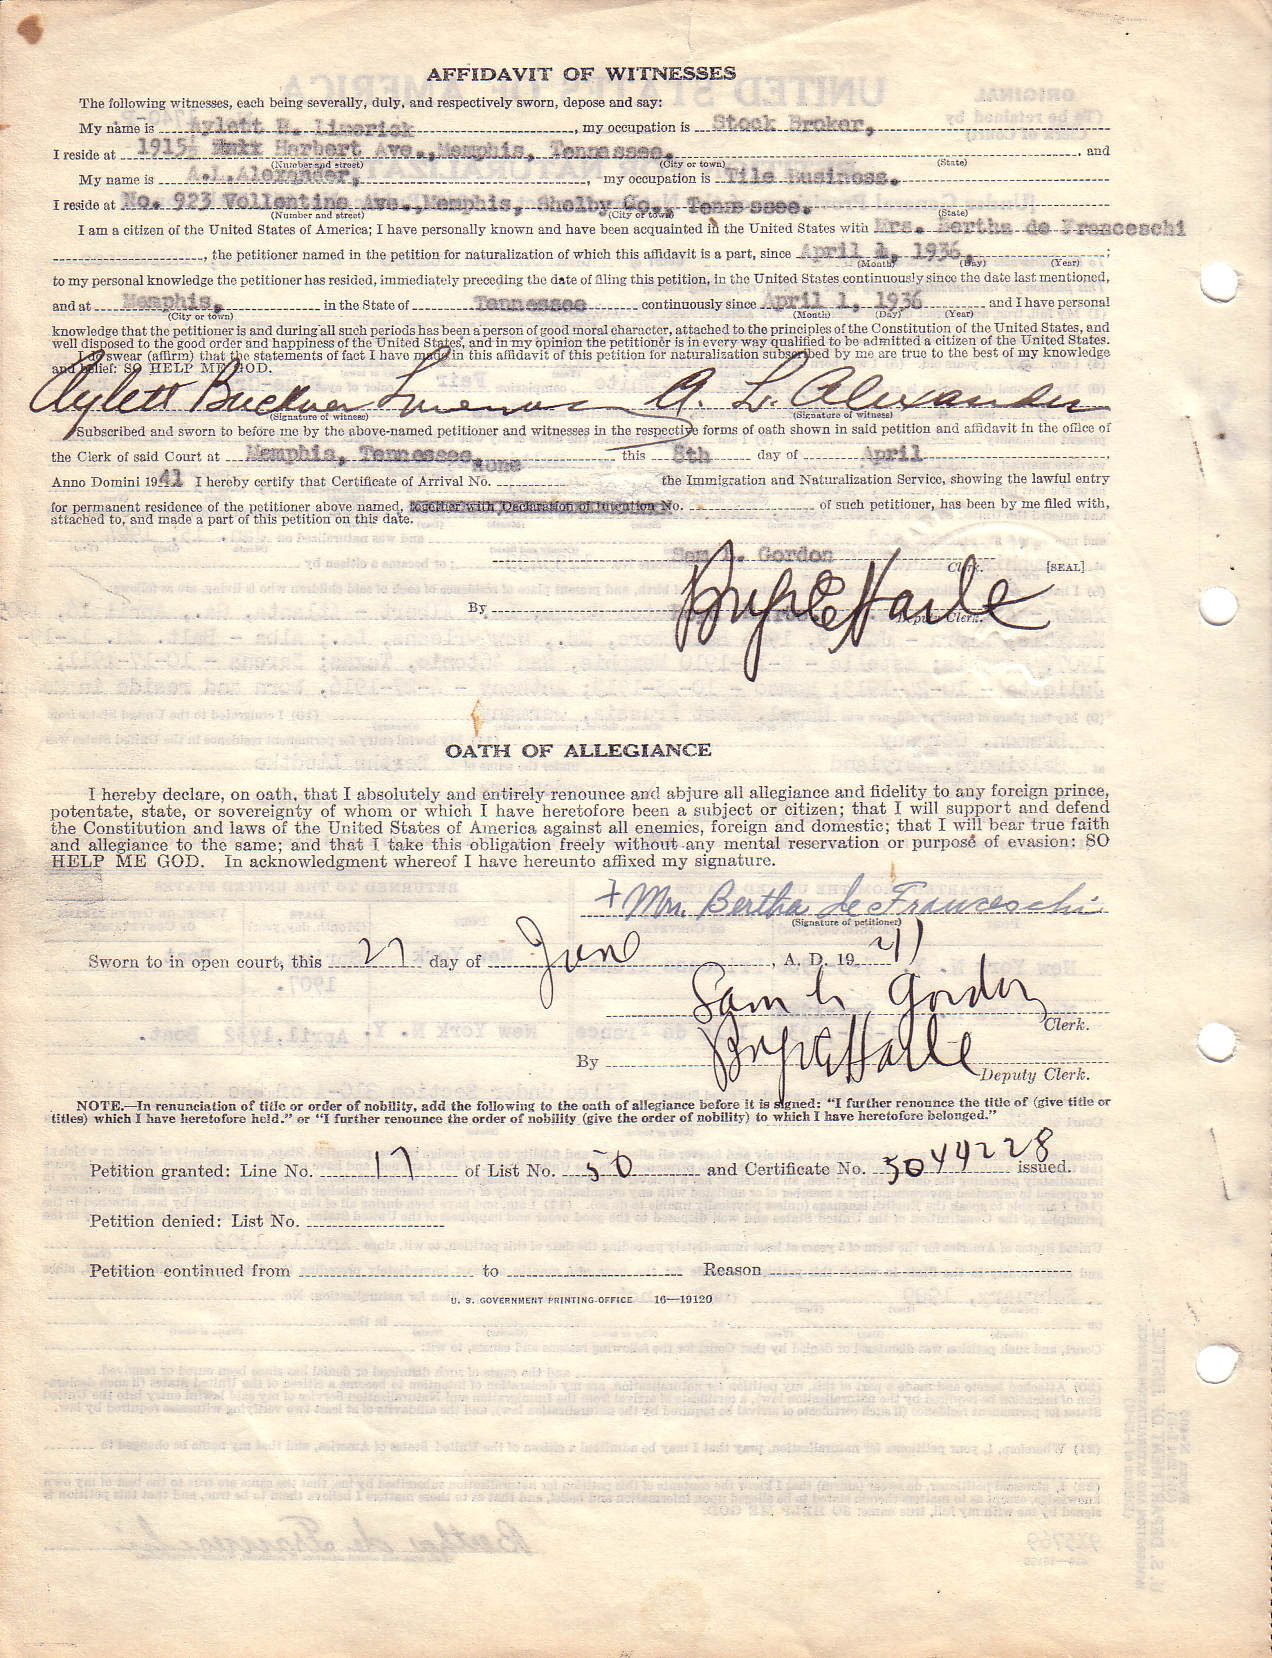 AFFIDAVIT OF WITNESSES
The following witnesses, each being severally, duly, and respectively sworn, depose and say:
My name is Aylett B. Limerick, my occupation is Stock Broker,
I reside at 1915½ Herbert Ave., Memphis, Tennessee, and
(Number and street) (City or town) (State)
My name is A.L.Alexander, my occupation is Tile Business.
I reside at No. 923 Vollentine Ave., Memphis, Shelby Co., Tennessee.
(Number and street) (City or town) (State)
I am a citizen of the United States of America; I have personally known and have been acquainted in the United States with Mrs. Bertha de Franceschi
, the petitioner named in the petition for naturalization of which this affidavit is a part, since April 1, 1936,;
(Month) (Day) (Year)
to my personal knowledge the petitioner has resided, immediately preceding the date of filing this petition, in the United States continuously since the date last mentioned,
and at Memphis, in the State of Tennessee continuously since April 1, 1936 and I have personal
(City or town) (Month) (Day) (Year)
knowledge that the petitioner is and during all such periods has been a person of good moral character, attached to the principles of the Constitution of the United States, and
well disposed to the good order and happiness of the United States, and in my opinion the petitioner is in every way qualified to be admitted a citizen of the United States.
I do swear (affirm) that the statements of fact I have made in this affidavit of this petition for naturalization subscribed by me are true to the best of my knowledge
and belief: SO HELP ME GOD.
Aylett Buckner Limerick A. L. Alexander
(Signature of witness) (Signature of witness)
Subscribed and sworn to before me by the above-named petitioner and witnesses in the respective forms of oath shown in said petition and affidavit in the office of
the Clerk of said Court at Memphis, Tennessee, this 8th day of April,
Anno Domini 1941 I hereby certify that Certificate of Arrival No. None the Immigration and Naturalization Service, showing the lawful entry
for permanent residence of the petitioner above named, together with Declaration of Intention No. of such petitioner, has been by me filed with,
attached to, and made a part of this petition on this date.
Sam L. Gordon
Clerk. [SEAL]
By
Deputy Clerk.
OATH OF ALLEGIANCE
I hereby declare, on oath, that I absolutely and entirely renounce and abjure all allegiance and fidelity to any foreign prince,
potentate, state, or sovereignty of whom or which I have heretofore been a subject or citizen; that I will support and defend
the Constitution and laws of the United States of America against all enemies, foreign and domestic; that I will bear true faith
and allegiance to the same; and that I take this obligation freely without any mental reservation or purpose of evasion: SO
HELP ME GOD. In acknowledgment whereof I have hereunto affixed my signature.
Mrs. Bertha de Franceschi
(Signature of petitioner)
Sworn to in open court, this 27 day of June, A. D. 1941
Sam L Gordon
Clerk.
By
Deputy Clerk.
NOTE.—In renunciation of title or order of nobility, add the following to the oath of allegiance before it is signed: "I further renounce the title of (give title or
titles) which I have heretofore held." or "I further renounce the order of nobility (give the order of nobility) to which I have heretofore belonged."
Petition granted: Line No. 17 of List No. 50 and Certificate No. 5044228 issued.
Petition denied: List No.
Petition continued from to Reason
U. S. GOVERNMENT PRINTING OFFICE 16—19120